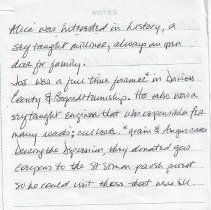 NOTES
Alice was interested in history, a
self taught milliner, always an open
door for family.
Jos was a full time farmer in Daviess
County & Township. He also was a
self taught engineer that was responsible for
many roads; culverts. grain & Angus cows
During the depression, they donated gas
coupons to the St Simon parish priest
so he could visit those that were ill